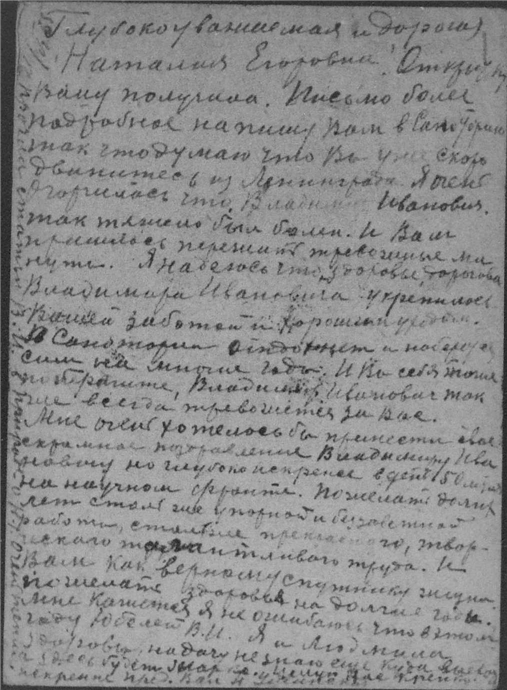 Глубокоуважаемая и дорогая
Наталия Егоровна! Открытку
Вашу получила. Письмо более
подробное напишу Вам в Санаторию
так что думаю что Вы уже скоро
двинитесь из Ленинграда. Я очень
огорчилась что Владимир Иванович
так тяжело был болен. И Вам
пришлось пережить тревожные ми
нуты. Я надеюсь что здоровье дорогова
Владимира Ивановича укрепилось
Вашей заботой и хорошим уходом.
В Санатории отдохнет и наберется
сил на многие годы. И Вы себя тоже
поберегите, Владимир Иванович так
же всегда тревожется за Вас.
Мне очень хотелось бы принести свое
скромное поздравление Владимиру Ива
новичу но глубоко искренее в день 50 летия
на научном фронте. Пожелать долгих
лет столь же упорной и беззаветной
работы, столь же прекрасного, твор-
ческого талантливого труда. И
Вам как верному спутнику жизни
пожелать здоровья на долгие годы.
Мне кажется я не ошибаюсь что в этом
году юбилей В.И. Я и Людмила
здоровы, на дачу не знаю еще куда выеду
здесь будет
искренне пред. Вам